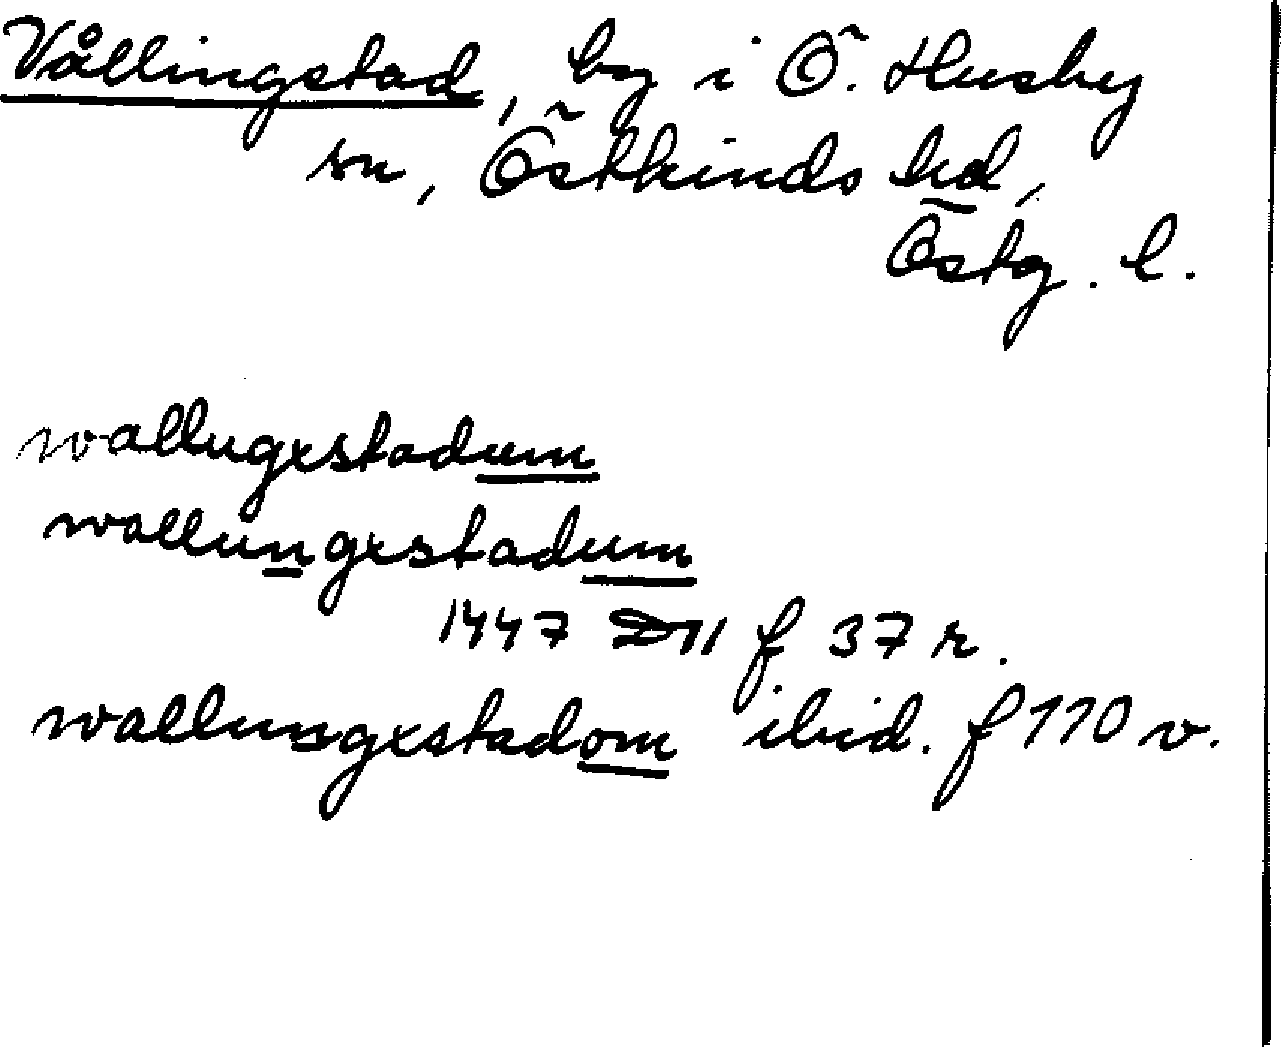 Vållingstad, by i Ö. Husby
sn, Östkinds hd,
Östg. l.
wallugxstadum
wallungxstadum
1447 D11 f 37 r.
wallungxstadom ibid. f 110 v.